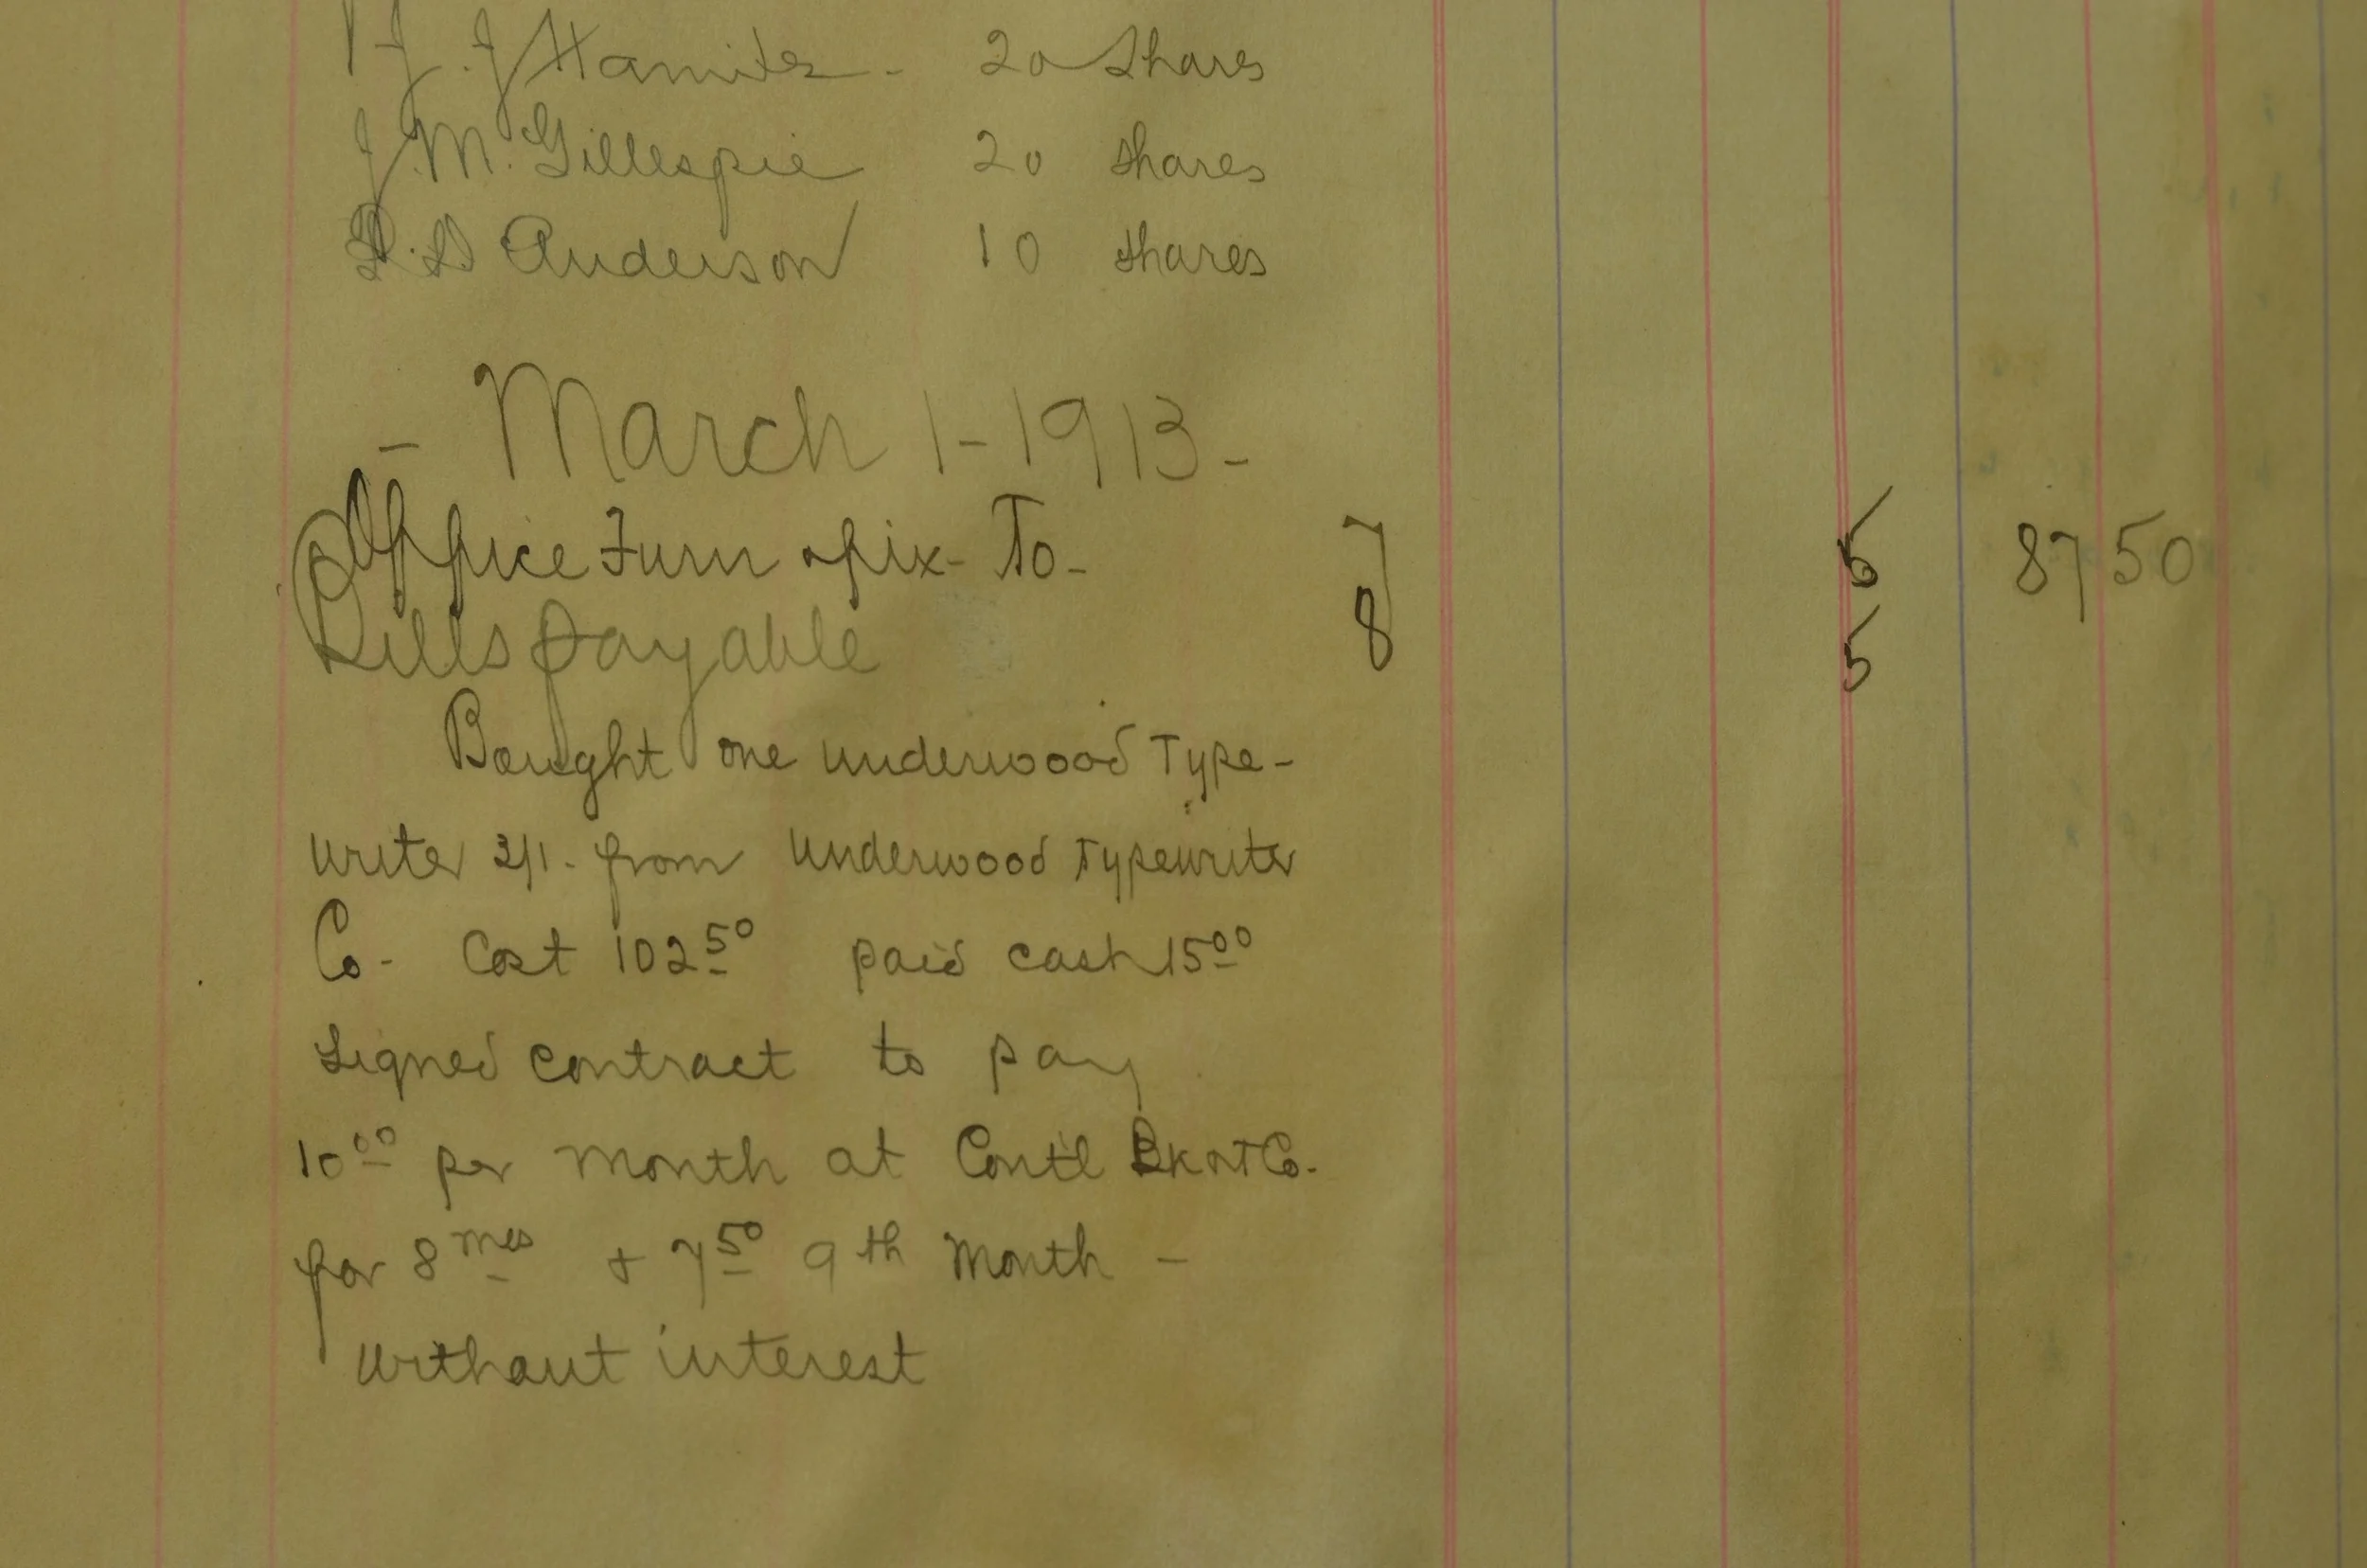 J. J. 20 Shares
J. M. Gillespie 20 Shares
Anderson 10 Shares
- March 1-1913-
Office Furn & Fix- To- 7 6 87 50
Bills payable 8 5
Bought one underwood Type-
writer 3/1- from Underwood Typewriter
Co- Cost 102 50 paid cash 15 00
Signed contract to pay
10 00 per month at Cont'l Bk & T Co.
for 8 mos + 7 50 9th month -
without interest